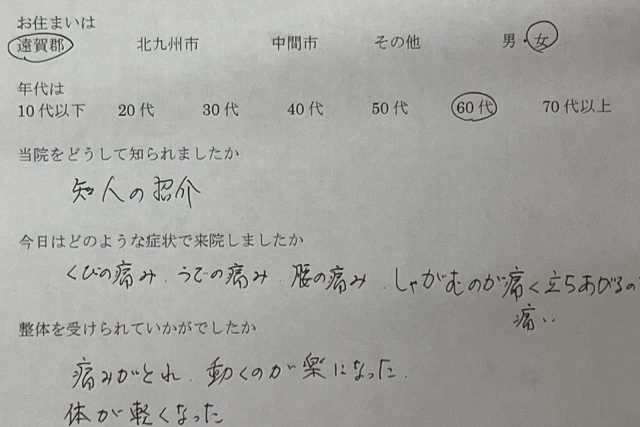 お住まいは
遠賀郡 北九州市 中間市 その他 男・女
年代は
10代以下 20代 30代 40代 50代 60代 70代以上
当院をどうして知られましたか
知人の紹介
今日はどのような症状で来院しましたか
くびの痛み．うでの痛み．腰の痛み．しゃがむのが痛く立ちあがるの
痛い
整体を受けられていかがでしたか
痛みがとれ．動くのが楽になった．
体が軽くなった